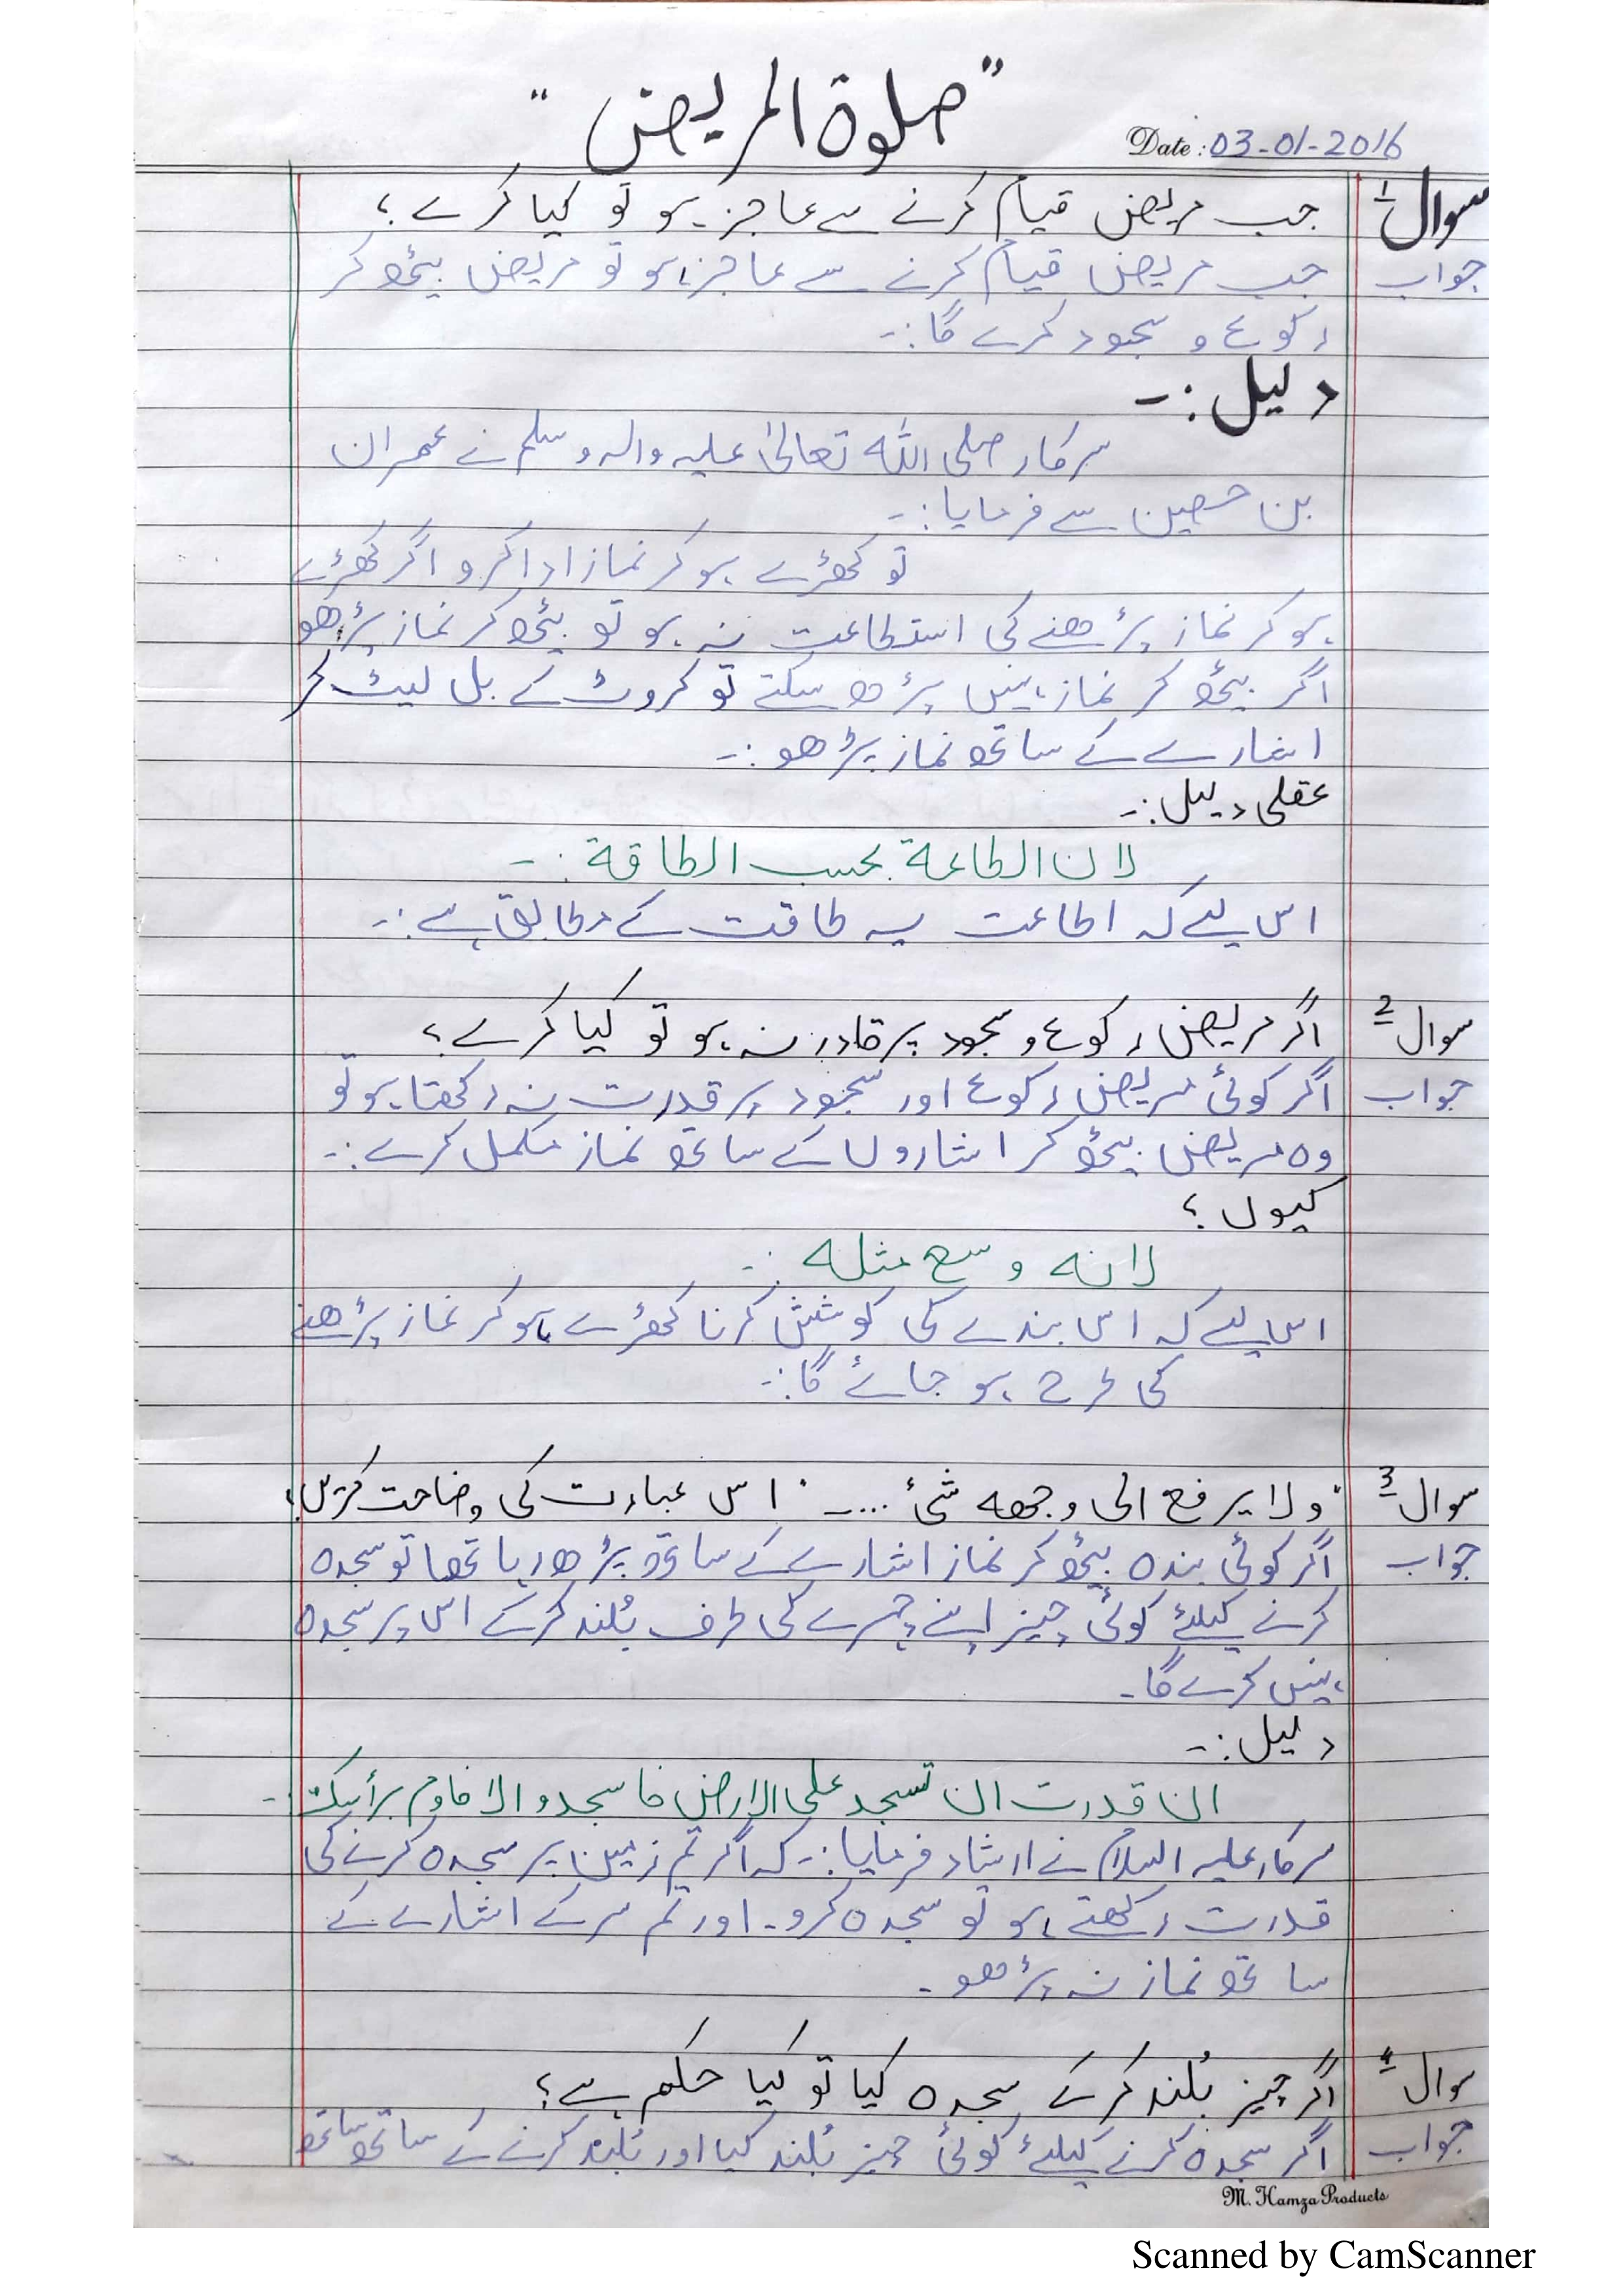 "صلوة المریض"
Date: 03-01-2016
سوال 1 جب مریض قیام کرنے سے عاجز ہو تو کیا کرے؟
جواب جب مریض قیام کرنے سے عاجز ہو تو مریض بیٹھ کر
رکوع و سجود کرے گا:۔
دلیل:۔
سرکار صلی اللہ تعالیٰ علیہ والہ وسلم نے عمران
بن حصین سے فرمایا:۔
تو کھڑے ہو کر نماز ادا کرو اگر کھڑے
ہو کر نماز پڑھنے کی استطاعت نہ ہو تو بیٹھ کر نماز پڑھو
اگر بیٹھ کر نماز نہیں پڑھ سکتے تو کروٹ کے بل لیٹ کر
اشارے کے ساتھ نماز پڑھو:۔
عقلی دلیل:۔
لان الطاعة بحسب الطاقة:۔
اس لیے کہ اطاعت یہ طاقت کے مطابق ہے:۔
سوال 2 اگر مریض رکوع و سجود پر قادر نہ ہو تو کیا کرے؟
جواب اگر کوئی مریض رکوع اور سجود پر قدرت نہ رکھتا ہو تو
وہ مریض بیٹھ کر اشاروں کے ساتھ نماز مکمل کرے:۔
کیوں؟
لانه وسع مثله:۔
اس لیے کہ اس بندے کی کوشش کرنا کھڑے ہو کر نماز پڑھنے
کی طرح ہو جائے گا:۔
سوال 3 "ولا یرفع الی وجهه شئ ....۔" اس عبارت کی وضاحت کریں؟
جواب اگر کوئی بندہ بیٹھ کر نماز اشارے کے ساتھ پڑھ رہا تھا تو سجدہ
کرنے کیلئے کوئی چیز اپنے چہرے کی طرف بُلند کرکے اس پر سجدہ
نہیں کرے گا۔
دلیل:۔
ان قدرت ان تسجد علی الارض فاسجدو الا فاوم برأسك:۔
سرکار علیہ السلام نے ارشاد فرمایا:۔ کہ اگر تم زمین پر سجدہ کرنے کی
قدرت رکھتے ہو تو سجدہ کرو۔ اور تم سر کے اشارے کے
ساتھ نماز نہ پڑھو۔
سوال 4 اگر چیز بُلند کرکے سجدہ کیا تو کیا حکم ہے؟
جواب اگر سجدہ کرنے کیلئے کوئی چیز بُلند کیا اور بُلند کرنے کے ساتھ ساتھ
M. Hamza Products
Scanned by CamScanner